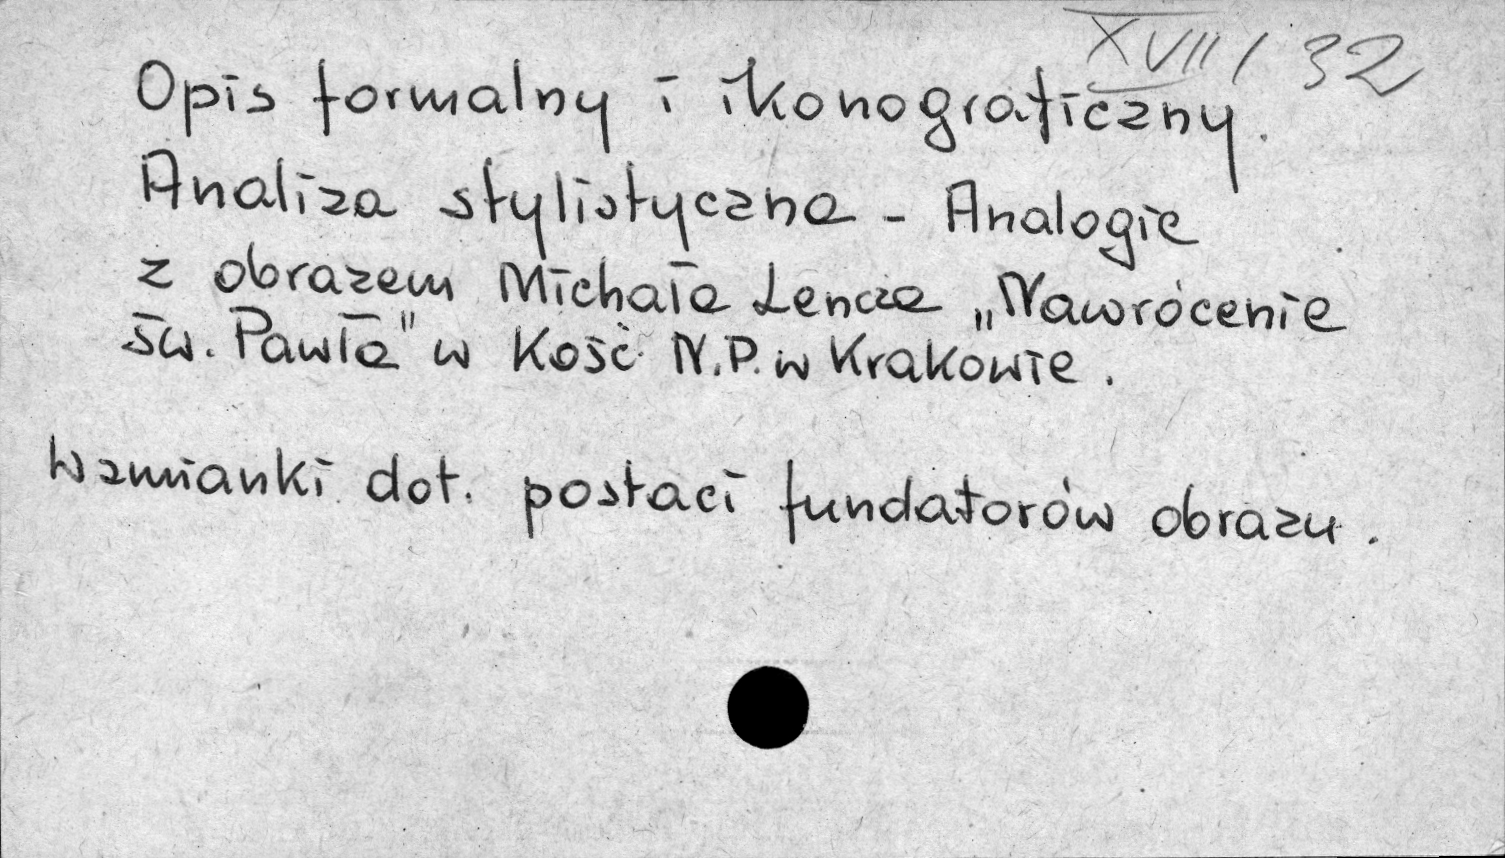 XVII/32
Opis formalny i ikonograficzny.
Analiza stylistyczna - Analogie
z obrazem Michała Lencza „Nawrócenie
św. Pawła" w Kość. N.P. w Krakowie.
Wzmianki dot. postaci fundatorów obrazu.